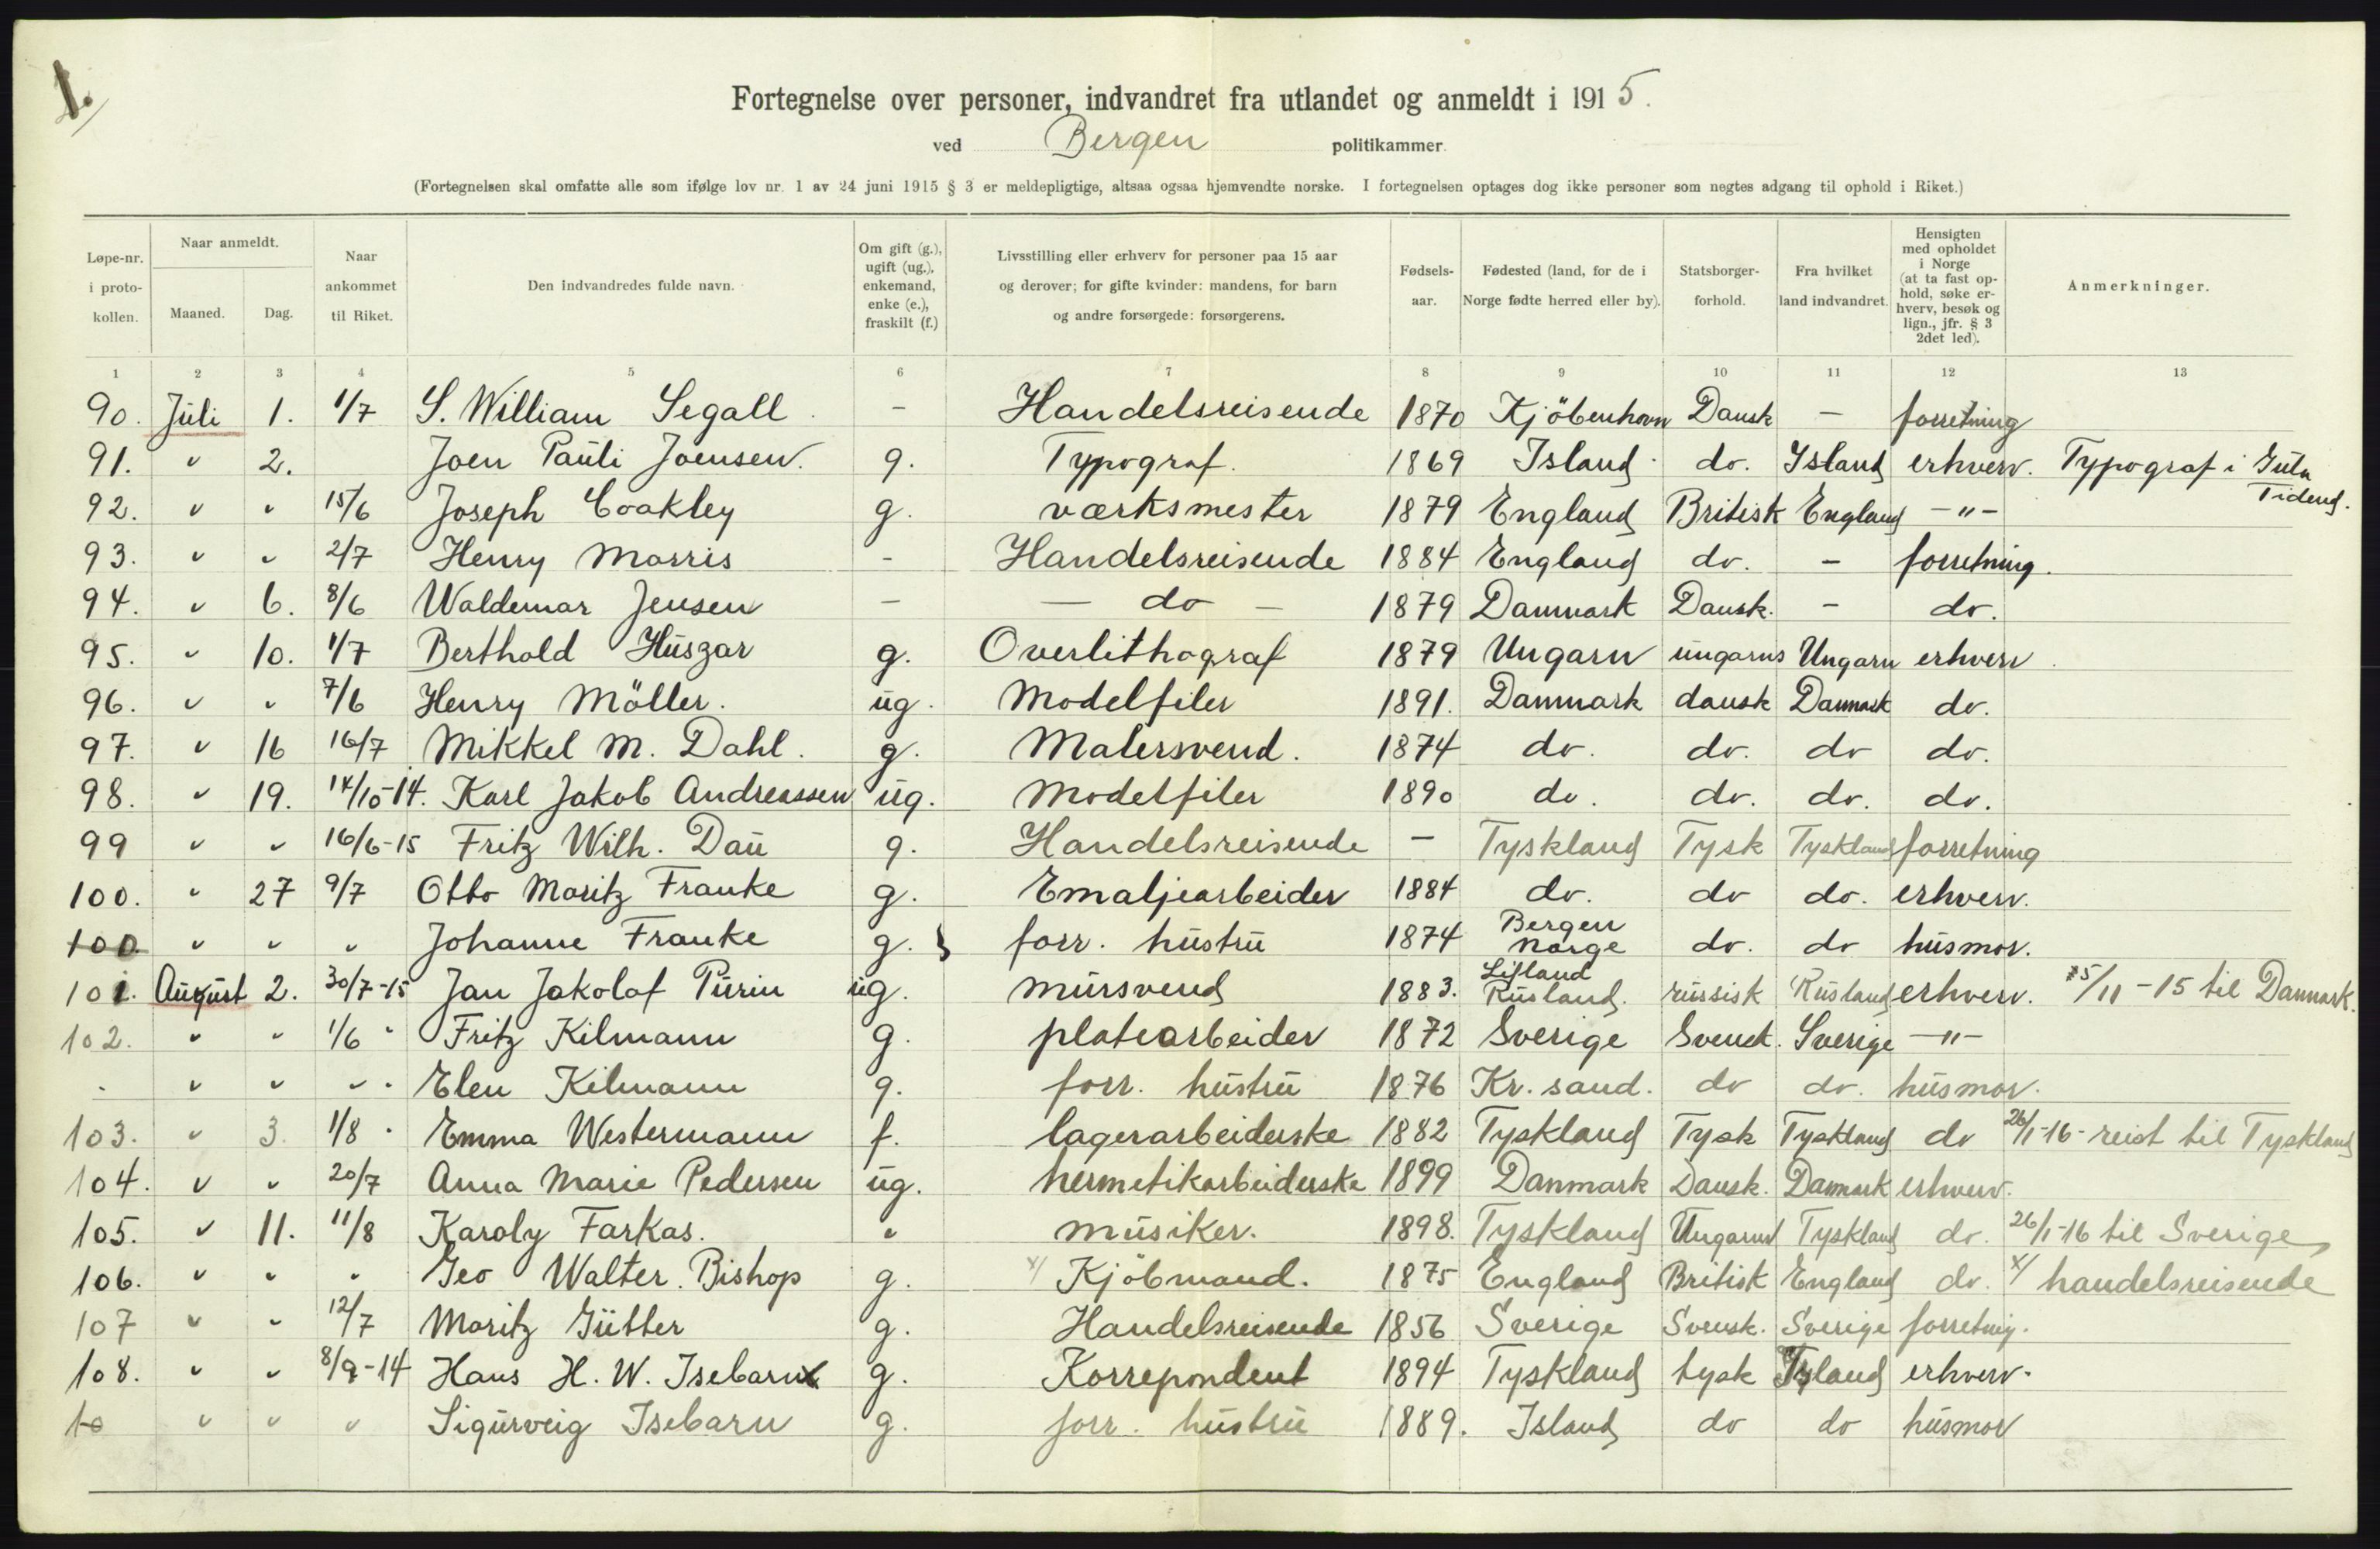 1.
Fortegnelse over personer, indvandret fra utlandet og anmeldt i 1915.
ved Bergen politikammer.
(Fortegnelsen skal omfatte alle som ifølge lov nr. 1 av 24 juni 1915 § 3 er meldepligtige, altsaa ogsaa hjemvendte norske. I fortegnelsen optages dog ikke personer som negtes adgang til ophold i Riket.)
Løpe-nr. i proto-kollen. Naar anmeldt. Maaned. Dag. Naar ankommet til Riket. Den indvandredes fulde navn. Om gift (g.), ugift (ug.), enkemand, enke (e.), fraskilt (f.) Livsstilling eller erhverv for personer paa 15 aar og derover; for gifte kvinder: mandens, for barn og andre forsørgede: forsørgerens. Fødsels-aar. Fødested (land, for de i Norge fødte herred eller by). Statsborger-forhold. Fra hvilket land indvandret. Hensigten med opholdet i Norge (at ta fast op-hold, søke er-hverv, besøk og lign., jfr. § 3 2det led). Anmerkninger.
1 2 3 4 5 6 7 8 9 10 11 12 13
90. Juli 1. 1/7 S. William Segall. - Handelsreisende 1870 Kjöbenhavn Dansk - forretning
91. " 2. Joen Pauli Joensen. g. Typograf. 1869 Island do. Island erhverv. Typograf i Gula Tidend.
92. " " 15/6 Joseph Coakley g. værksmester 1879 England Britisk England -"-
93. " " 2/7 Henry Morris - Handelsreisende 1884 England do. - forretning.
94. " 6. 8/6 Waldemar Jensen - - do - 1879 Danmark Dansk. - do.
95. " 10. 1/7 Berthold Huszar g. Overlithograf 1879 Ungarn ungarns Ungarn erhverv.
96. " " 7/6 Henry Möller. ug. Modelfiler 1891. Danmark dansk Danmark do.
97. " 16 16/7 Mikkel M. Dahl. g. Malersvend. 1874 do. do. do do.
98. " 19. 14/10-14. Karl Jakob Andreassen ug. Modelfiler 1890 do. do. do. do.
99 " " 16/6-15 Fritz Wilh. Dau g. Handelsreisende - Tyskland Tysk Tyskland forretning
100. " 27 9/7 Otto Moritz Franke g. Emaljearbeider 1884 do. do do. erhverv.
100 " " " Johanne Franke g. forr. hustru 1874 Bergen Norge do. do husmor.
101. August 2. 30/7-15 Jan Jakolaf Purin ug. mursvend 1883. Lifland Rusland. russisk Rusland erhverv. 15/11-15 til Danmark.
102. " " 1/6 " Fritz Kilmann g. platearbeider 1872 Sverige Svensk. Sverige -"-
- " " " " Elen Kilmann g. forr. hustru 1876 Kr. sand. do do. husmor.
103. " 3. 1/8 " Emma Westermann f. lagerarbeiderske 1882 Tyskland Tysk Tyskland do 26/1-16- reist til Tyskland
104. " " 20/7 Anna Marie Pedersen ug. hermetikarbeiderske 1899 Danmark Dansk. Danmark erhverv.
105. " 11. 11/8 Karoly Farkas. " musiker. 1898. Tyskland Ungarns Tyskland do. 26/1-16 til Sverige
106. " " " Geo Walter. Bishop g. x/ Kjöbmand. 1875 England Britisk England do. x/ handelsreisende
107 " " 12/7 Moritz Gütter g. Handelsreisende 1856 Sverige Svensk. Sverige forretnig.
108. " " 8/9-14 Hans H. W. Isebarn g. Korrepondent 1894 Tyskland tysk Island erhverv.
10 " " " Sigurveig Isebarn g. forr. hustru 1889. Island do do husmor